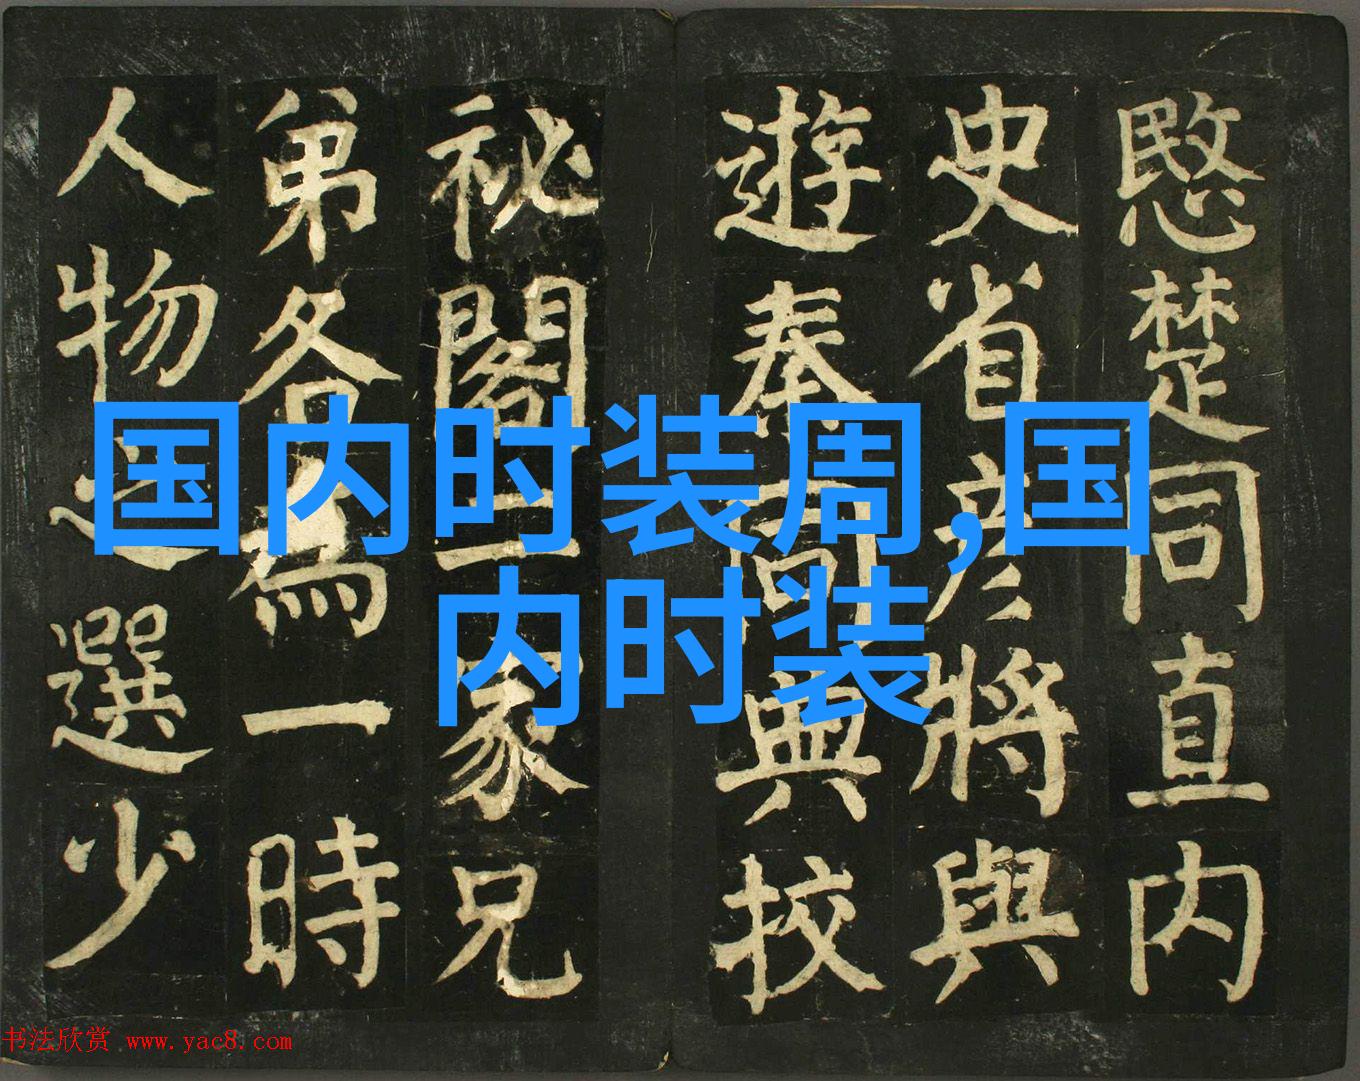 愍楚同直内
史省彦將與
遊秦同典校
祕閣二家兄
弟各為一時
人物之選少
国内时装周,国
内时装
书法欣赏 www.yac8.com